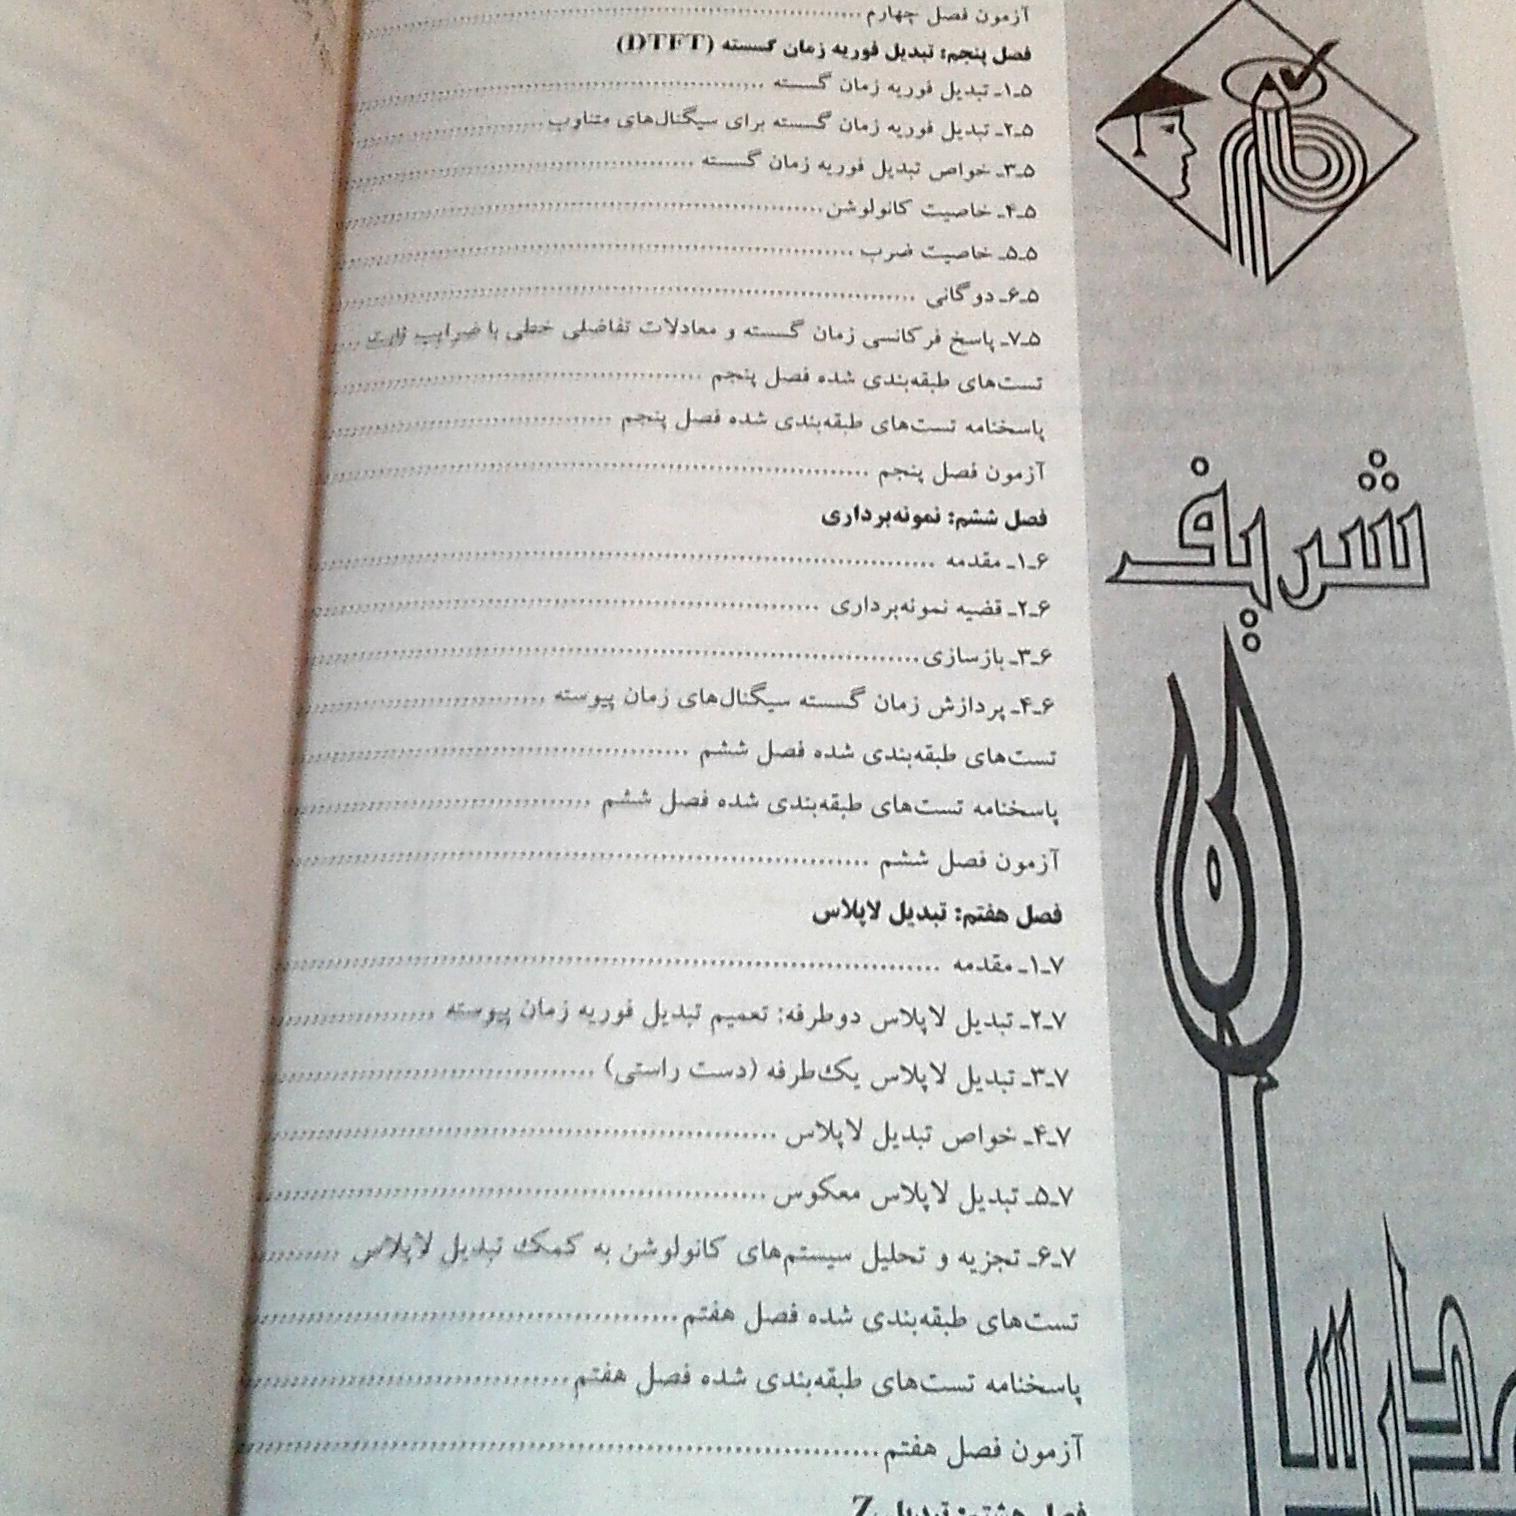 آزمون فصل چهارم
فصل پنجم: تبدیل فوریه زمان گسسته (DTFT)
۵ـ۱ـ تبدیل فوریه زمان گسسته
۵ـ۲ـ تبدیل فوریه زمان گسسته برای سیگنال‌های متناوب
۵ـ۳ـ خواص تبدیل فوریه زمان گسسته
۵ـ۴ـ خاصیت کانولوشن
۵ـ۵ـ خاصیت ضرب
۵ـ۶ـ دوگانی
۵ـ۷ـ پاسخ فرکانسی زمان گسسته و معادلات تفاضلی خطی با ضرایب ثابت
تست‌های طبقه‌بندی شده فصل پنجم
پاسخنامه تست‌های طبقه‌بندی شده فصل پنجم
آزمون فصل پنجم
فصل ششم: نمونه‌برداری
۶ـ۱ـ مقدمه
۶ـ۲ـ قضیه نمونه‌برداری
۶ـ۳ـ بازسازی
۶ـ۴ـ پردازش زمان گسسته سیگنال‌های زمان پیوسته
تست‌های طبقه‌بندی شده فصل ششم
پاسخنامه تست‌های طبقه‌بندی شده فصل ششم
آزمون فصل ششم
فصل هفتم: تبدیل لاپلاس
۷ـ۱ـ مقدمه
۷ـ۲ـ تبدیل لاپلاس دوطرفه: تعمیم تبدیل فوریه زمان پیوسته
۷ـ۳ـ تبدیل لاپلاس یک‌طرفه (دست راستی)
۷ـ۴ـ خواص تبدیل لاپلاس
۷ـ۵ـ تبدیل لاپلاس معکوس
۷ـ۶ـ تجزیه و تحلیل سیستم‌های کانولوشن به کمک تبدیل لاپلاس
تست‌های طبقه‌بندی شده فصل هفتم
پاسخنامه تست‌های طبقه‌بندی شده فصل هفتم
آزمون فصل هفتم
فصل هشتم: تبدیل Z
شریف